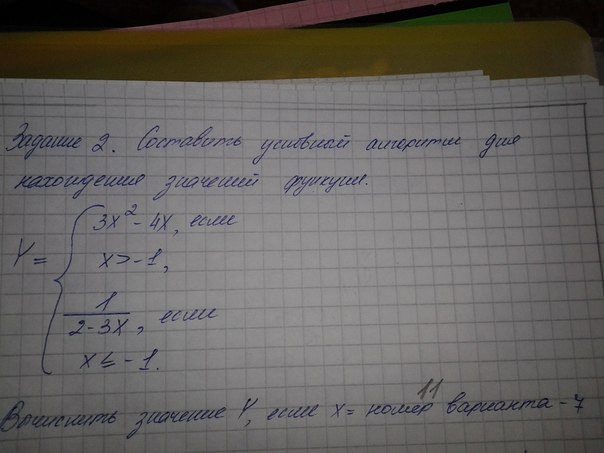 Задание 2. Составить условный алгоритм для
нахождения значений функции.
Y = { 3x² - 4x, если
x > -1,
1/(2-3x), если
x ≤ -1.
11
Вычислить значение Y, если x = номер варианта - 7